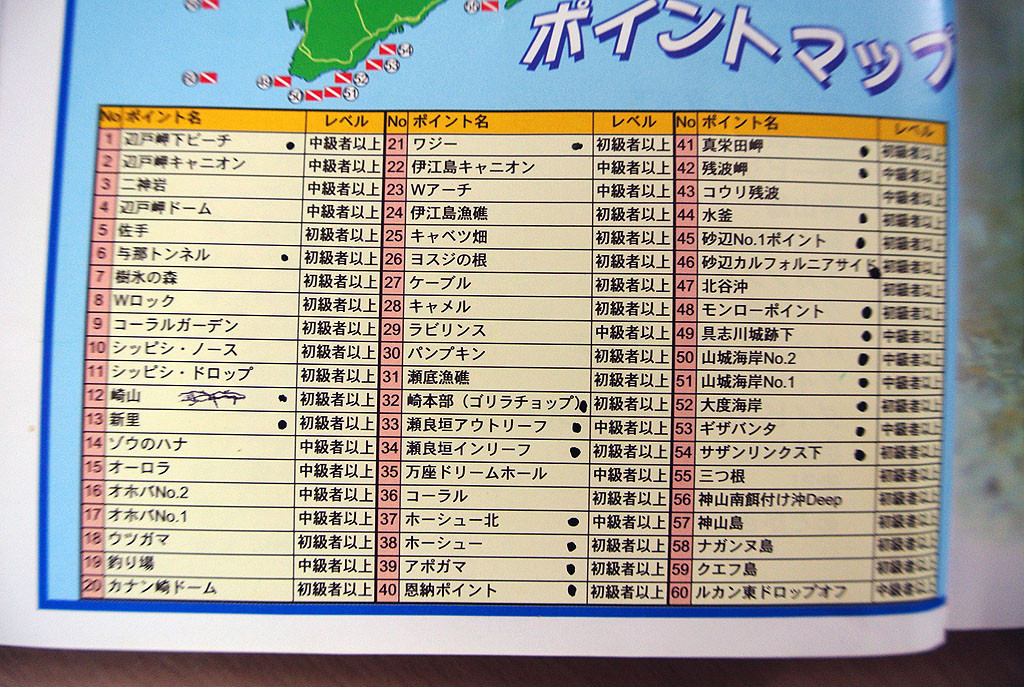 ポイントマップ
54
53
52
51
50
49
No ポイント名 レベル
1 辺戸岬下ビーチ 中級者以上
2 辺戸岬キャニオン 中級者以上
3 二神岩 中級者以上
4 辺戸岬ドーム 中級者以上
5 佐手 初級者以上
6 与那トンネル 初級者以上
7 樹氷の森 初級者以上
8 Wロック 初級者以上
9 コーラルガーデン 初級者以上
10 シッピシ・ノース 初級者以上
11 シッピシ・ドロップ 初級者以上
12 崎山 初級者以上
13 新里 初級者以上
14 ゾウのハナ 中級者以上
15 オーロラ 中級者以上
16 オホバNo.2 中級者以上
17 オホバNo.1 中級者以上
18 ウツガマ 初級者以上
19 釣り場 中級者以上
20 カナン崎ドーム 初級者以上
No ポイント名 レベル
21 ワジー 初級者以上
22 伊江島キャニオン 中級者以上
23 Wアーチ 中級者以上
24 伊江島漁礁 初級者以上
25 キャベツ畑 初級者以上
26 ヨスジの根 初級者以上
27 ケーブル 初級者以上
28 キャメル 初級者以上
29 ラビリンス 中級者以上
30 パンプキン 初級者以上
31 瀬底漁礁 初級者以上
32 崎本部（ゴリラチョップ） 初級者以上
33 瀬良垣アウトリーフ 中級者以上
34 瀬良垣インリーフ 初級者以上
35 万座ドリームホール 中級者以上
36 コーラル 初級者以上
37 ホーシュー北 中級者以上
38 ホーシュー 初級者以上
39 アポガマ 初級者以上
40 恩納ポイント 初級者以上
No ポイント名 レベル
41 真栄田岬 初級者以上
42 残波岬 中級者以上
43 コウリ残波 中級者以上
44 水釜 初級者以上
45 砂辺No.1ポイント 初級者以上
46 砂辺カルフォルニアサイド 初級者以上
47 北谷沖 初級者以上
48 モンローポイント 初級者以上
49 具志川城跡下 中級者以上
50 山城海岸No.2 中級者以上
51 山城海岸No.1 中級者以上
52 大度海岸 初級者以上
53 ギザバンタ 中級者以上
54 サザンリンクス下 中級者以上
55 三つ根 初級者以上
56 神山南餌付け沖Deep 初級者以上
57 神山島 初級者以上
58 ナガンヌ島 初級者以上
59 クエフ島 初級者以上
60 ルカン東ドロップオフ 中級者以上